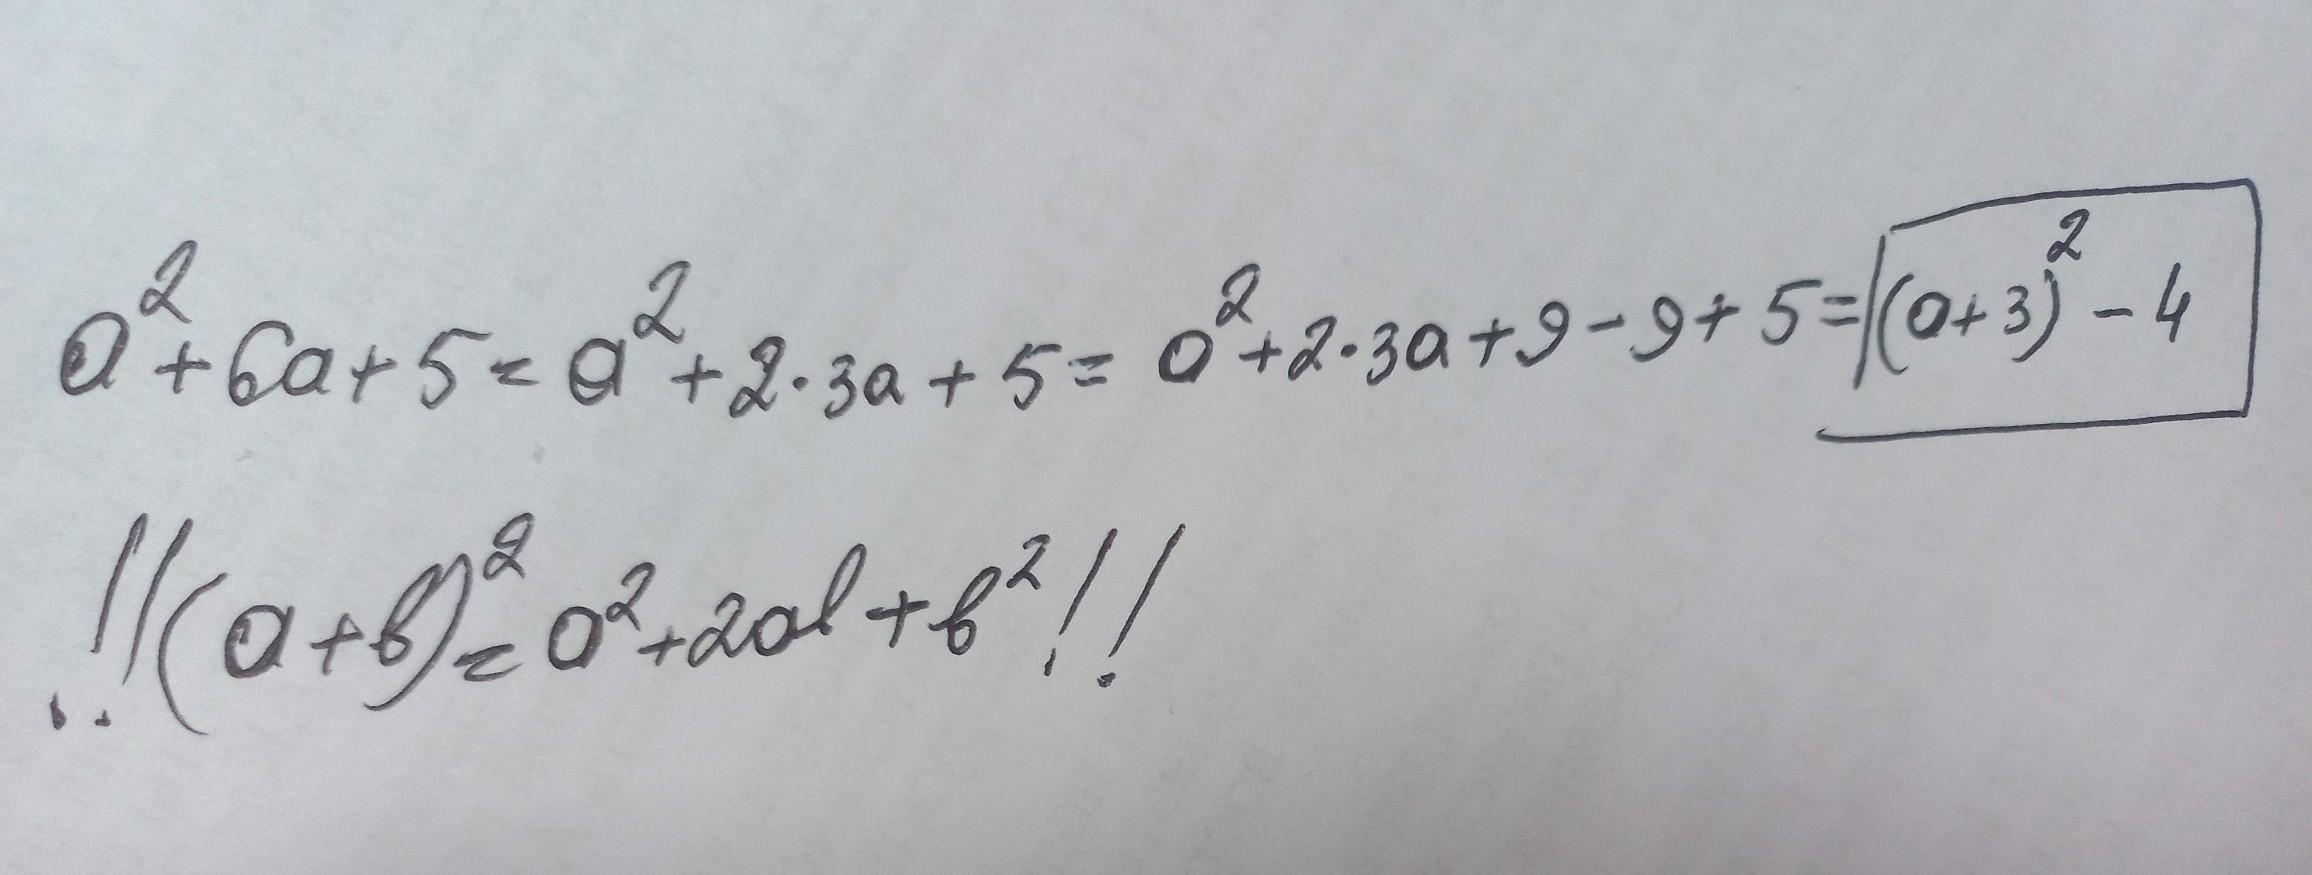 a²+6a+5=a²+2·3a+5=a²+2·3a+9-9+5=(a+3)²-4
!!(a+b)²=a²+2ab+b²!!